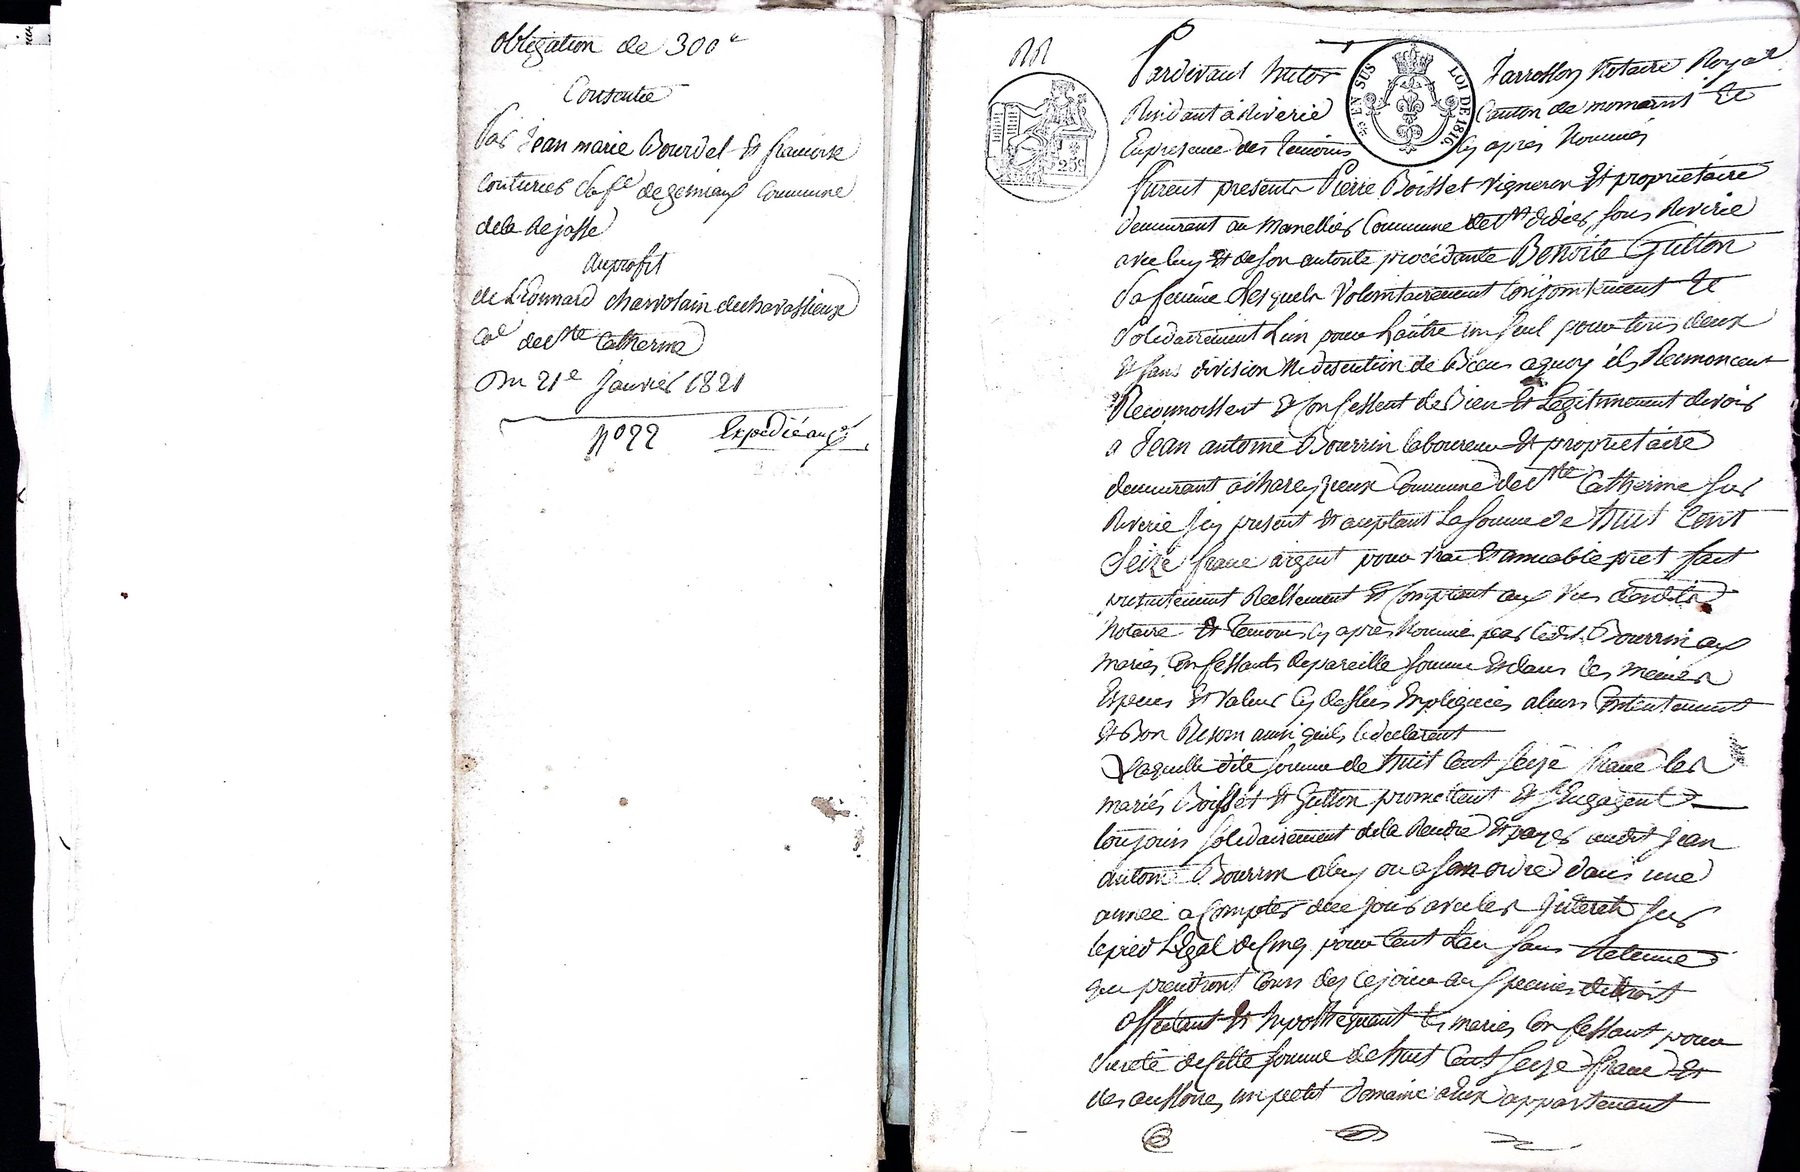 obligation de 300#
Consentie
Par Jean marie Bourdel Et francoise
Couturier sa fe de gemiaux Commune
dela Rejasse
Au profit
de Leonnard charvolain de chavassieux
Coe de Ste Catherine
Du 21e Janvier 1821
No 22 Expedié aux
Pardevant Victor Jarrosson Notaire Royal
Residant a Riverie Canton de mornant Et
En presence des Temoins Cy apres Nommés
furent presents Pierre Boisset vigneron Et proprietaire
demeurant au Commune de St didier sous Riverie
avec luy Et de son autorité procédante Benoite Guitton
sa femme Lesquels Volontairement Conjointement Et
Solidairement L'un pour L'autre un seul pour tous deux
Et sans division Ni discution de Biens a quoy ils Renoncent
Reconnoissent Et Confessent de Bien Et Légitimement devoir
a Jean antoine Bourrin laboureur Et proprietaire
demeurant a Commune de Ste Catherine sur
Riverie Icy present Et acceptant La somme de huit Cent
Seize franc argent pour vrai Et amiable pret fait
presentement Reellement Et Comptant aux Vus desdits
Notaire Et Temoins Cy apres Nommé par ledit Bourrin aux
mariés Confessants de pareille somme Et dans les memes
Especes Et Valeur Cy dessus Expliquées a leurs Contentement
Et Bon Besoin ainsi quils le declarent
Laquelle dite somme de huit Cent Seize franc les
mariés Boisset Et Guitton promettent Et s'Engagent
toujours solidairement de la Rendre Et payer audit Jean
antoine Bourrin a luy ou a son ordre dans une
année a Compter de ce jour avec les Interets sur
le pied Légal de Cinq pour Cent L'an sans Retenue
qui prendront Cours des ce jour au de droit
affectant Et hypothequant les mariés Confessant pour
sureté de cette somme de huit Cent Seize franc Et
des un petit Domaine a Eux appartenant
EN SUS LOI DE 1816
25c